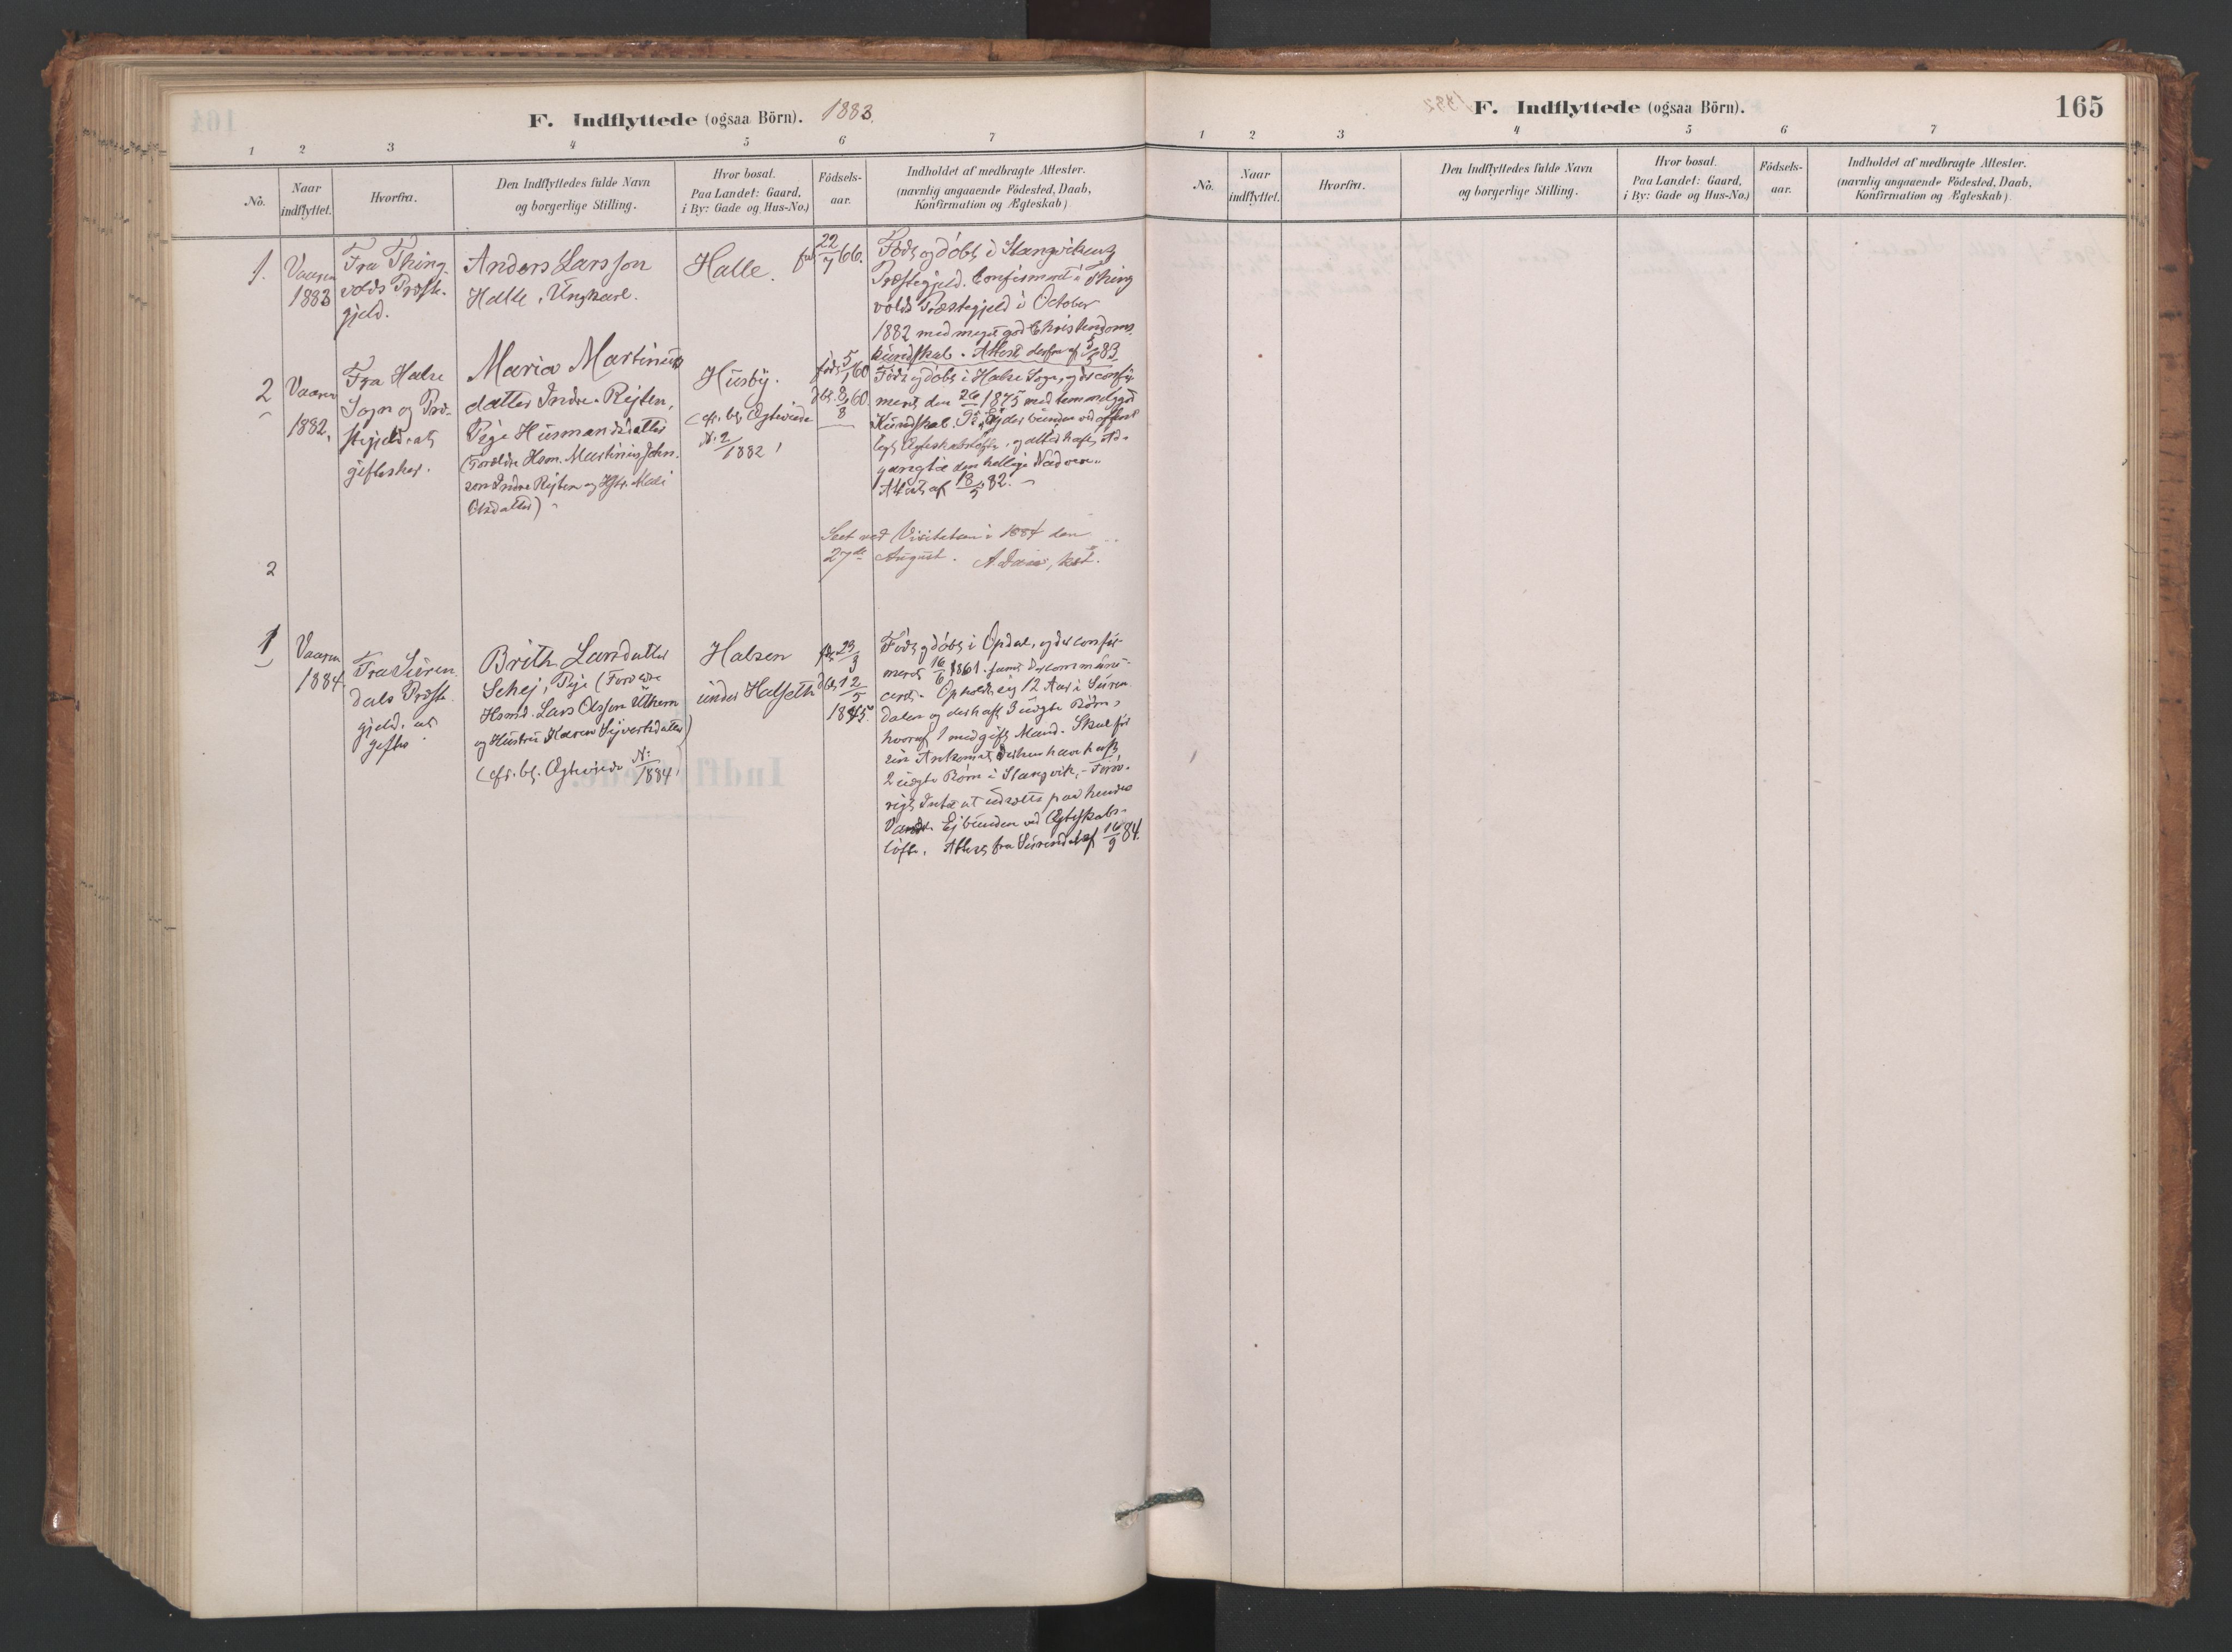 F. Indflyttede (ogsaa Börn). 1883.
1 2 3 4 5 6 7
No.
Naar indflyttet.
Hvorfra.
Den Indflyttedes fulde Navn
og borgerlige Stilling.
Hvor bosat.
Paa Landet: Gaard,
i By: Gade og Hus-No.)
Födsels-
aar.
Indholdet af medbragte Attester.
(navnlig angaaende Födested, Daab,
Konfirmation og Ægteskab)
1.
Vaaren
1883
Fra Thing-
volds Præste-
gjeld.
Anders Larsson
Halle, Ungkarl.
Halle.
22/7 66.
Födt og döbt i Stangvikens
Præstegjeld. Confirmert i Thing
volds Præstegjeld i October
1882 med meget god Christendoms-
kundskab. Attest derfra af 5/5 83.
2
Vaaren
1882.
Fra Halse
Sogn og Præ-
stegjeld, at
giftes her.
Maria Martinus
datter Indre-Rejten,
Pige Husmandsdatter
(Forældre Hsm. Martinus John-
son Indre Rejten og Hstr. Mali
Olsdatter)
Husby.
(cfr. bl. Ægteviede
N. 2/1882)
födt 5/1 60
döbt 60
Födt og döbt i Halse Sogn, og der confir-
meret den 1875 med temmelig god
Kundskab. Ej der bunden ved offent
ligt Ægteskabslöfte, og altid havt Ad-
gang til den hellige Nadvere.
Attest af 18/5 82.
Seet ved Visitatsen i 1884 den
27de August. kst.
2
1
Vaaren
1884.
Fra Suren-
dals Præste
gjeld, at
giftes
Brith Larsdatter
Schej, Pige (Forældre
Hsmd. Lars Olsson
og Hustru Karen Sivertsdatter)
(cfr. bl. Ægteviede N: /1884)
Halsen
under Halseth
födt 23/3
döbt 12/5
1845.
Födt og döbt i Opdal, og der confir-
meret 16/6 1861. samt Der communi-
ceret. Opholdt sig 12 Aar i Suren-
dalen og der havt 3 uægte Börn,
hvoraf 1 med gift Mand. Skal för
sin Ankomst dertil have havt
2 uægte Börn i Stangvik. Forøv-
rigt Intet at udsætte paa hendes
Vandel. Ej bunden ved Ægteskabs-
löfte. Attest fra Surendal af 16/9 84.
F. Indflyttede (ogsaa Börn).
165
1 2 3 4 5 6 7
No.
Naar
indflyttet.
Hvorfra.
Den Indflyttedes fulde Navn
og borgerlige Stilling.
Hvor bosat.
Paa Landet: Gaard,
i By: Gade og Hus-No.)
Födsels-
aar.
Indholdet af medbragte Attester.
(navnlig angaaende Födested, Daab,
Konfirmation og Ægteskab)